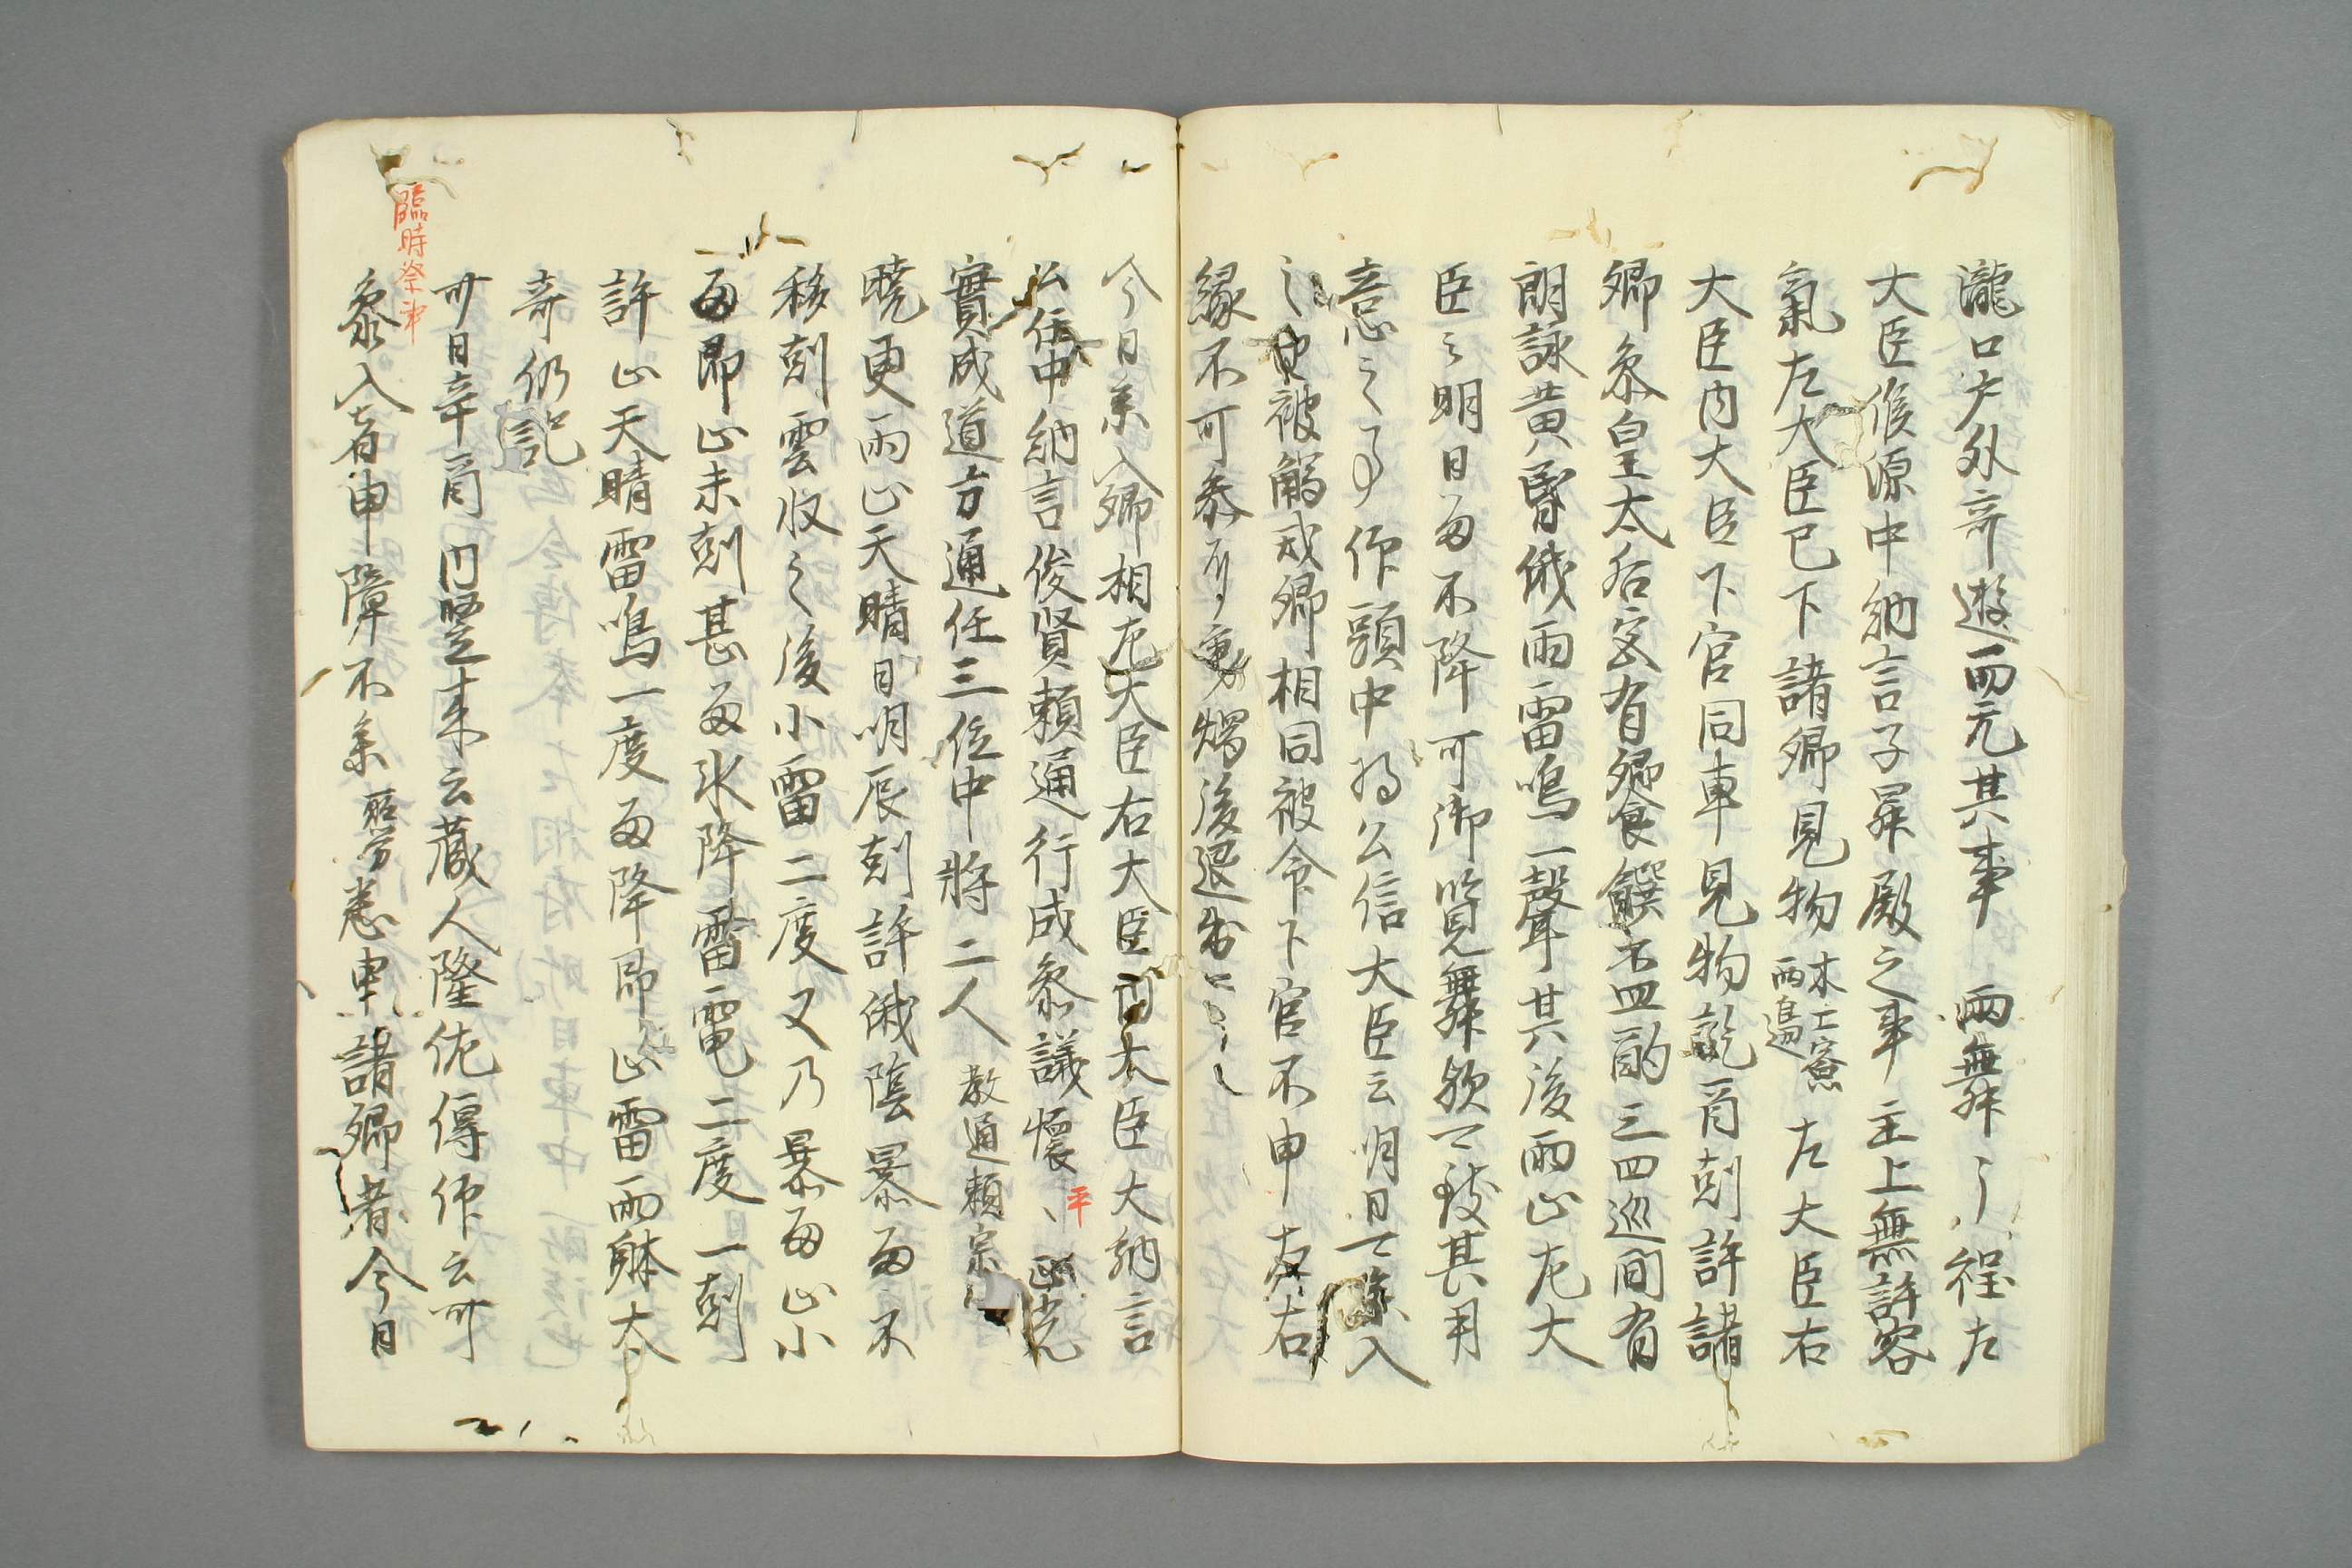 瀧口戸外奇遊而无其事　兩舞了程左
大臣候源中納言子昇殿之事主上無許容
氣左大臣已下諸卿見物木工寮両烏遊左大臣右
大臣内大臣下官同車見物訖酉剋許諸
卿参皇太后宮有饗饌盃酌三四巡間有
朗詠黄昏俄雨雷鳴一聲其後雨止左大
臣云明日雨不降可御覧舞欤可致其用
意之事仰頭中将公信大臣云明日可参入
之由被觸戒卿相同被命下官不申左右
縁不可参而已秉燭後退出
今日参入卿相左大臣右大臣内大臣大納言
公任中納言俊賢頼通行成参議懐平正光
實成道方通任三位中将二人教通頼宗
暁更雨止天晴日明辰剋許俄陰暴雨不
移剋雲收之後小雷二度又乃暴雨止小
雨即止未剋甚雨氷降雷電二度一剋
許止天晴雷鳴一度雨降即止雷雨躰太
奇仍記
臨時祭事
廿日辛酉内竪来云蔵人隆佐傳仰云可
参入者申障不参所労悉車諸卿者今日